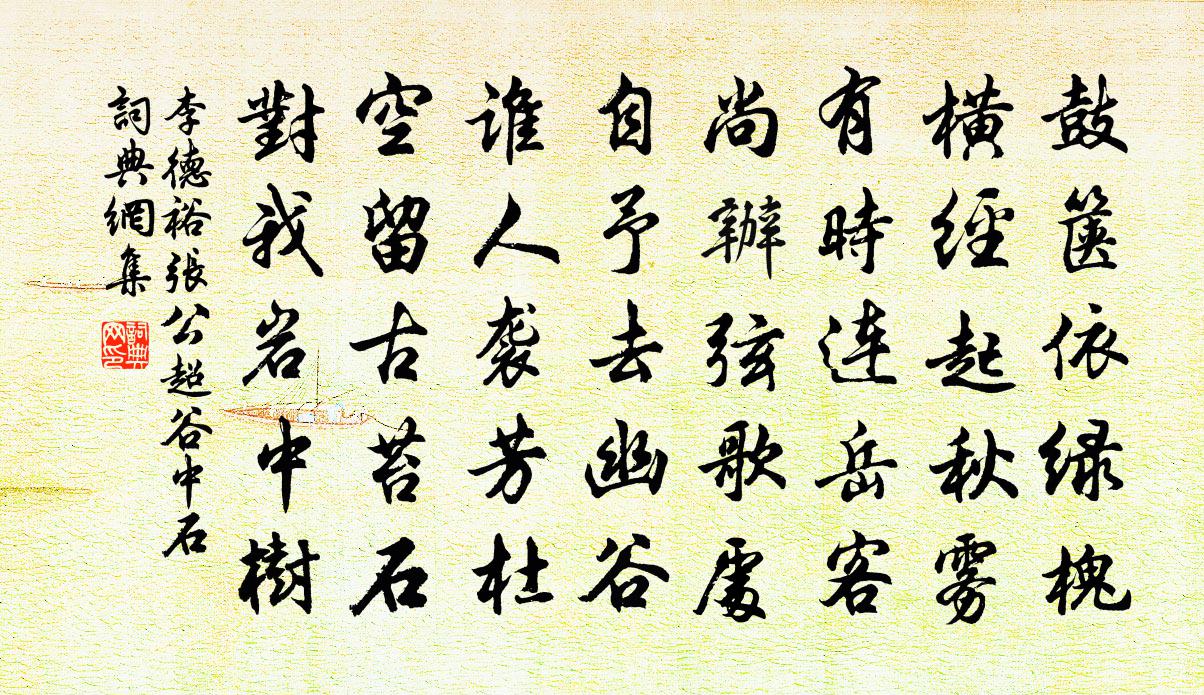 鼓篋依绿槐
橫經起秋雾
有時连岳客
尚辦弦歌處
自予去幽谷
谁人袭芳杜
空留古苔石
對我岩中樹
李德裕張公超谷中石
詞典網集
詞典网印